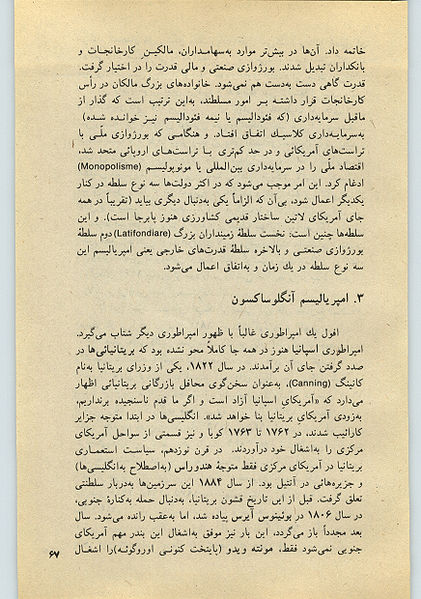 خاتمه داد. آن‌ها در بیش‌تر موارد به‌سهامداران، مالکین کارخانجات و
بانکداران تبدیل شدند. بورژوازی صنعتی و مالی قدرت را در اختیار گرفت.
قدرت گاهی دست به‌دست هم نمی‌شود. خانواده‌های بزرگ مالکان در رأس
کارخانجات قرار داشته بر امور مسلطند، به‌این ترتیب است که گذار از
ماقبل سرمایه‌داری (که فئودالیسم یا نیمه فئودالیسم نیز خوانده شده)
به‌سرمایه‌داری کلاسیك اتفاق افتاد. و هنگامی که بورژوازی ملّی با
تراست‌های آمریکائی و در حد کم‌تری با تراست‌های اروپائی متحد شد،
اقتصاد ملّی را در سرمایه‌داری بین‌المللی یا مونوپولیسم (Monopolisme)
ادغام کرد. این امر موجب می‌شود که در اکثر دولت‌ها سه نوع سلطه در کنار
یکدیگر اعمال شود، بی‌آن که الزاماً یکی به‌دنبال دیگری بیاید (تقریباً در همه
جای آمریکای لاتین ساختار قدیمی کشاورزی هنوز پابرجا است). و این
سلطه‌ها چنین است: نخست سلطهٔ زمینداران بزرگ (Latifondiare) دوم سلطهٔ
بورژوازی صنعتی و بالاخره سلطهٔ قدرت‌های خارجی یعنی امپریالیسم این
سه نوع سلطه در یك زمان و به‌اتفاق اعمال می‌شود.
۳. امپریالیسم آنگلوساکسون
افول یك امپراطوری غالباً با ظهور امپراطوری دیگر شتاب می‌گیرد.
امپراطوری اسپانیا هنوز در همه جا کاملاً محو نشده بود که بریتانیائی‌ها در
صدد گرفتن جای آن برآمدند. در سال ۱۸۲۲، یکی از وزرای بریتانیا به‌نام
کانینگ (Canning)، به‌عنوان سخن‌گوی محافل بازرگانی بریتانیائی اظهار
می‌دارد که «آمریکای اسپانیا آزاد است و اگر ما قدم ناسنجیده برنداریم،
به‌زودی آمریکای بریتانیا بنا خواهد شد». انگلیسی‌ها در ابتدا متوجه جزایر
کارائیب شدند، در ۱۷۶۲ تا ۱۷۶۳ کوبا و نیز قسمتی از سواحل آمریکای
مرکزی را به‌اشغال خود درآوردند. در قرن نوزدهم، سیاست استعماری
بریتانیا در آمریکای مرکزی فقط متوجهٔ هندوراس (به‌اصطلاح به‌انگلیسی‌ها)
و جزیره‌هائی در آنتیل بود. از سال ۱۸۸۴ این سرزمین‌ها به‌دربار سلطنتی
تعلق گرفت. قبل از این تاریخ قشون بریتانیا، به‌دنبال حمله به‌کنارهٔ جنوبی،
در سال ۱۸۰۶ در بوئینوس آیرس پیاده شد، اما به‌عقب رانده می‌شود. سال
بعد مجدداً باز می‌گردد، این بار نیز موفق به‌اشغال این بندر مهم آمریکای
جنوبی نمی‌شود فقط، مونته ویدو (پایتخت کنونی اوروگوئه) را اشغال
۶۷